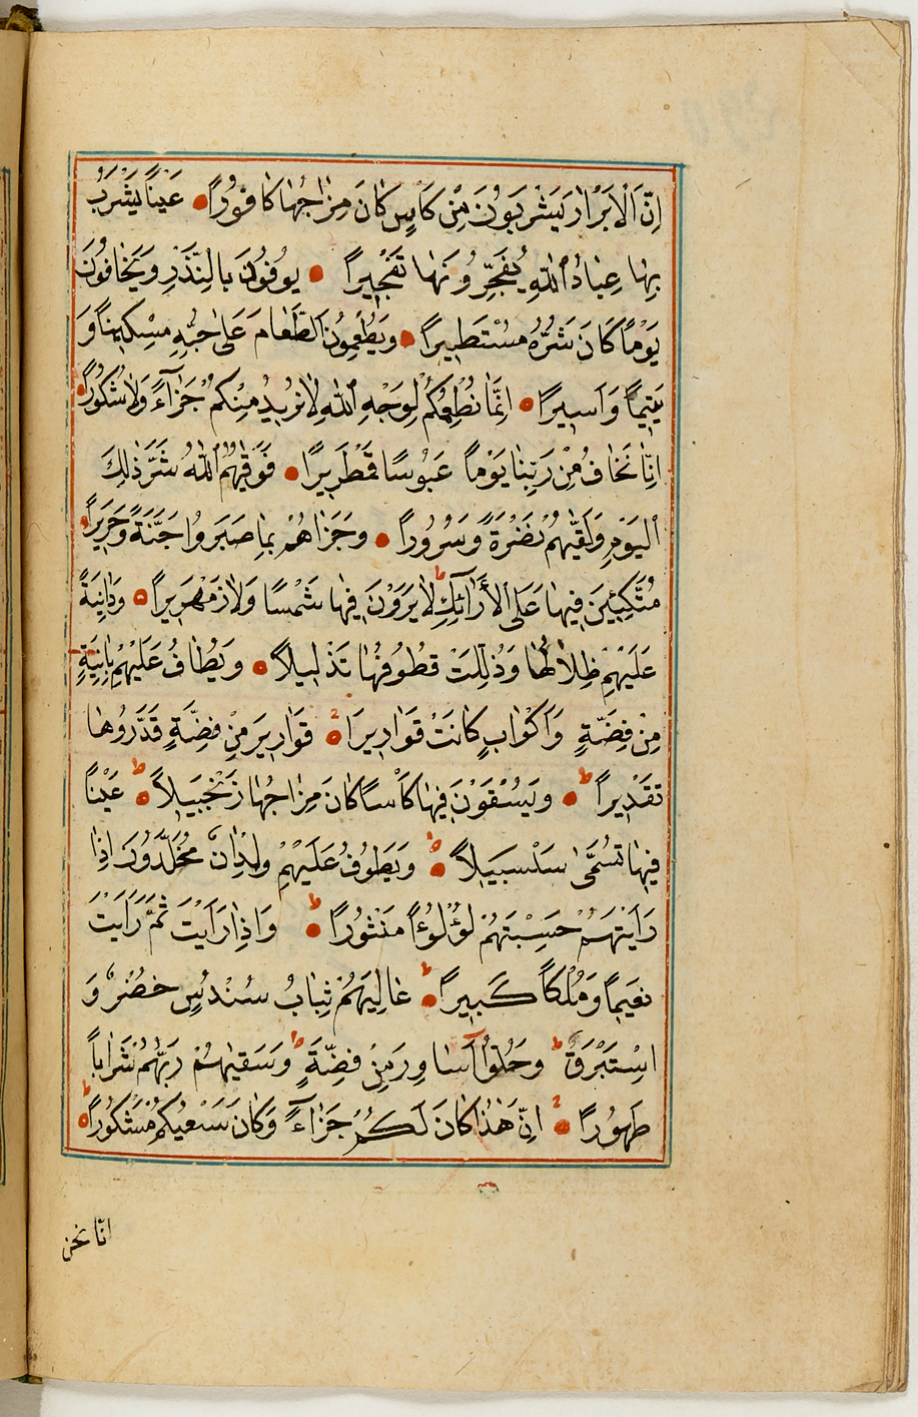 اِنَّ الْاَبْرٰارَ يَشْرَبُوُنَ مِنْ كَاْسٍ كانَ مِزٰاجُهٰا كٰافُوُراً عَيْناً يَشْرَبُ
بِهٰا عِبٰادُ اللهِ يُفَجِّرُونَهٰا تَفْجٖيراً يوُفُونَ بِالنَّذْرِ وَيَخٰافُونَ
يَوْمًا كَانَ شَرُّهُ مُسْتَطٖيراً وَيُطْعِمُونَ الطَّعٰامَ عَلىٰ حُبِّهٖ مِسْكٖيناً وَ
يَتٖيماً وَاَسٖيراً اِنَّمٰا نُطْعِمُكُمْ لِوَجْهِ اللهِ لٰا نُرٖيدُ مِنْكُمْ جَزٰٓاءً وَلٰا شُكُوراً
اِنّٰا نَخٰافُ مِنْ رَبِّنٰا يَوْماً عَبُوسًا قَمْطَرٖيراً فَوَقٰيهُمُ اللهُ شَرَّ ذٰلِكَ
الْيَوْمِ وَلَقّٰيهُمْ نَضْرَةً وَسُرُوراً وَجَزٰاهُمْ بِمٰا صَبَرُوا جَنَّةً وَحَرٖيراً
مُتَّكِئٖينَ فٖيهٰا عَلَى الْاَرٰٓائِكِ لٰا يَرَوْنَ فٖيهٰا شَمْسًا وَلٰا زَمْهَرٖيراً وَدٰانِيَةً
عَلَيْهِمْ ظِلٰالُهٰا وَذُلِّلَتْ قُطُوُفُهٰا تَذْلٖيلاً وَيُطٰافُ عَلَيْهِمْ بِاٰنِيَةٍ
مِنْ فِضَّةٍ وَاَكْوٰابٍ كٰانَتْ قَوٰارٖيرَا قَوٰارٖيرَ مِنْ فِضَّةٍ قَدَّرُوهٰا
تَقْدٖيراً وَيُسْقَوْنَ فٖيهٰا كَاْسًا كٰانَ مِزٰاجُهٰا زَنْجَبٖيلاً عَيْناً
فٖيهٰا تُسَمّٰى سَلْسَبٖيلاً وَيَطُوفُ عَلَيْهِمْ وِلْدٰانٌ مُخَلَّدُونَ اِذٰا
رَاَيْتَهُمْ حَسِبْتَهُمْ لُؤْلُؤًا مَنْثُوراً وَاِذٰا رَاَيْتَ ثَمَّ رَاَيْتَ
نَعٖيماً وَمُلْكاً كَبٖيراً عٰالِيَهُمْ ثِيٰابُ سُنْدُسٍ خُضْرٌ وَ
اِسْتَبْرَقٌ وَحُلُّوٓا اَسٰاوِرَ مِنْ فِضَّةٍ وَسَقٰيهُمْ رَبُّهُمْ شَرٰاباً
طَهُوراً اِنَّ هٰذٰا كٰانَ لَكُمْ جَزٰٓاءً وَكٰانَ سَعْيُكُمْ مَشْكُوراً
انّا نحن